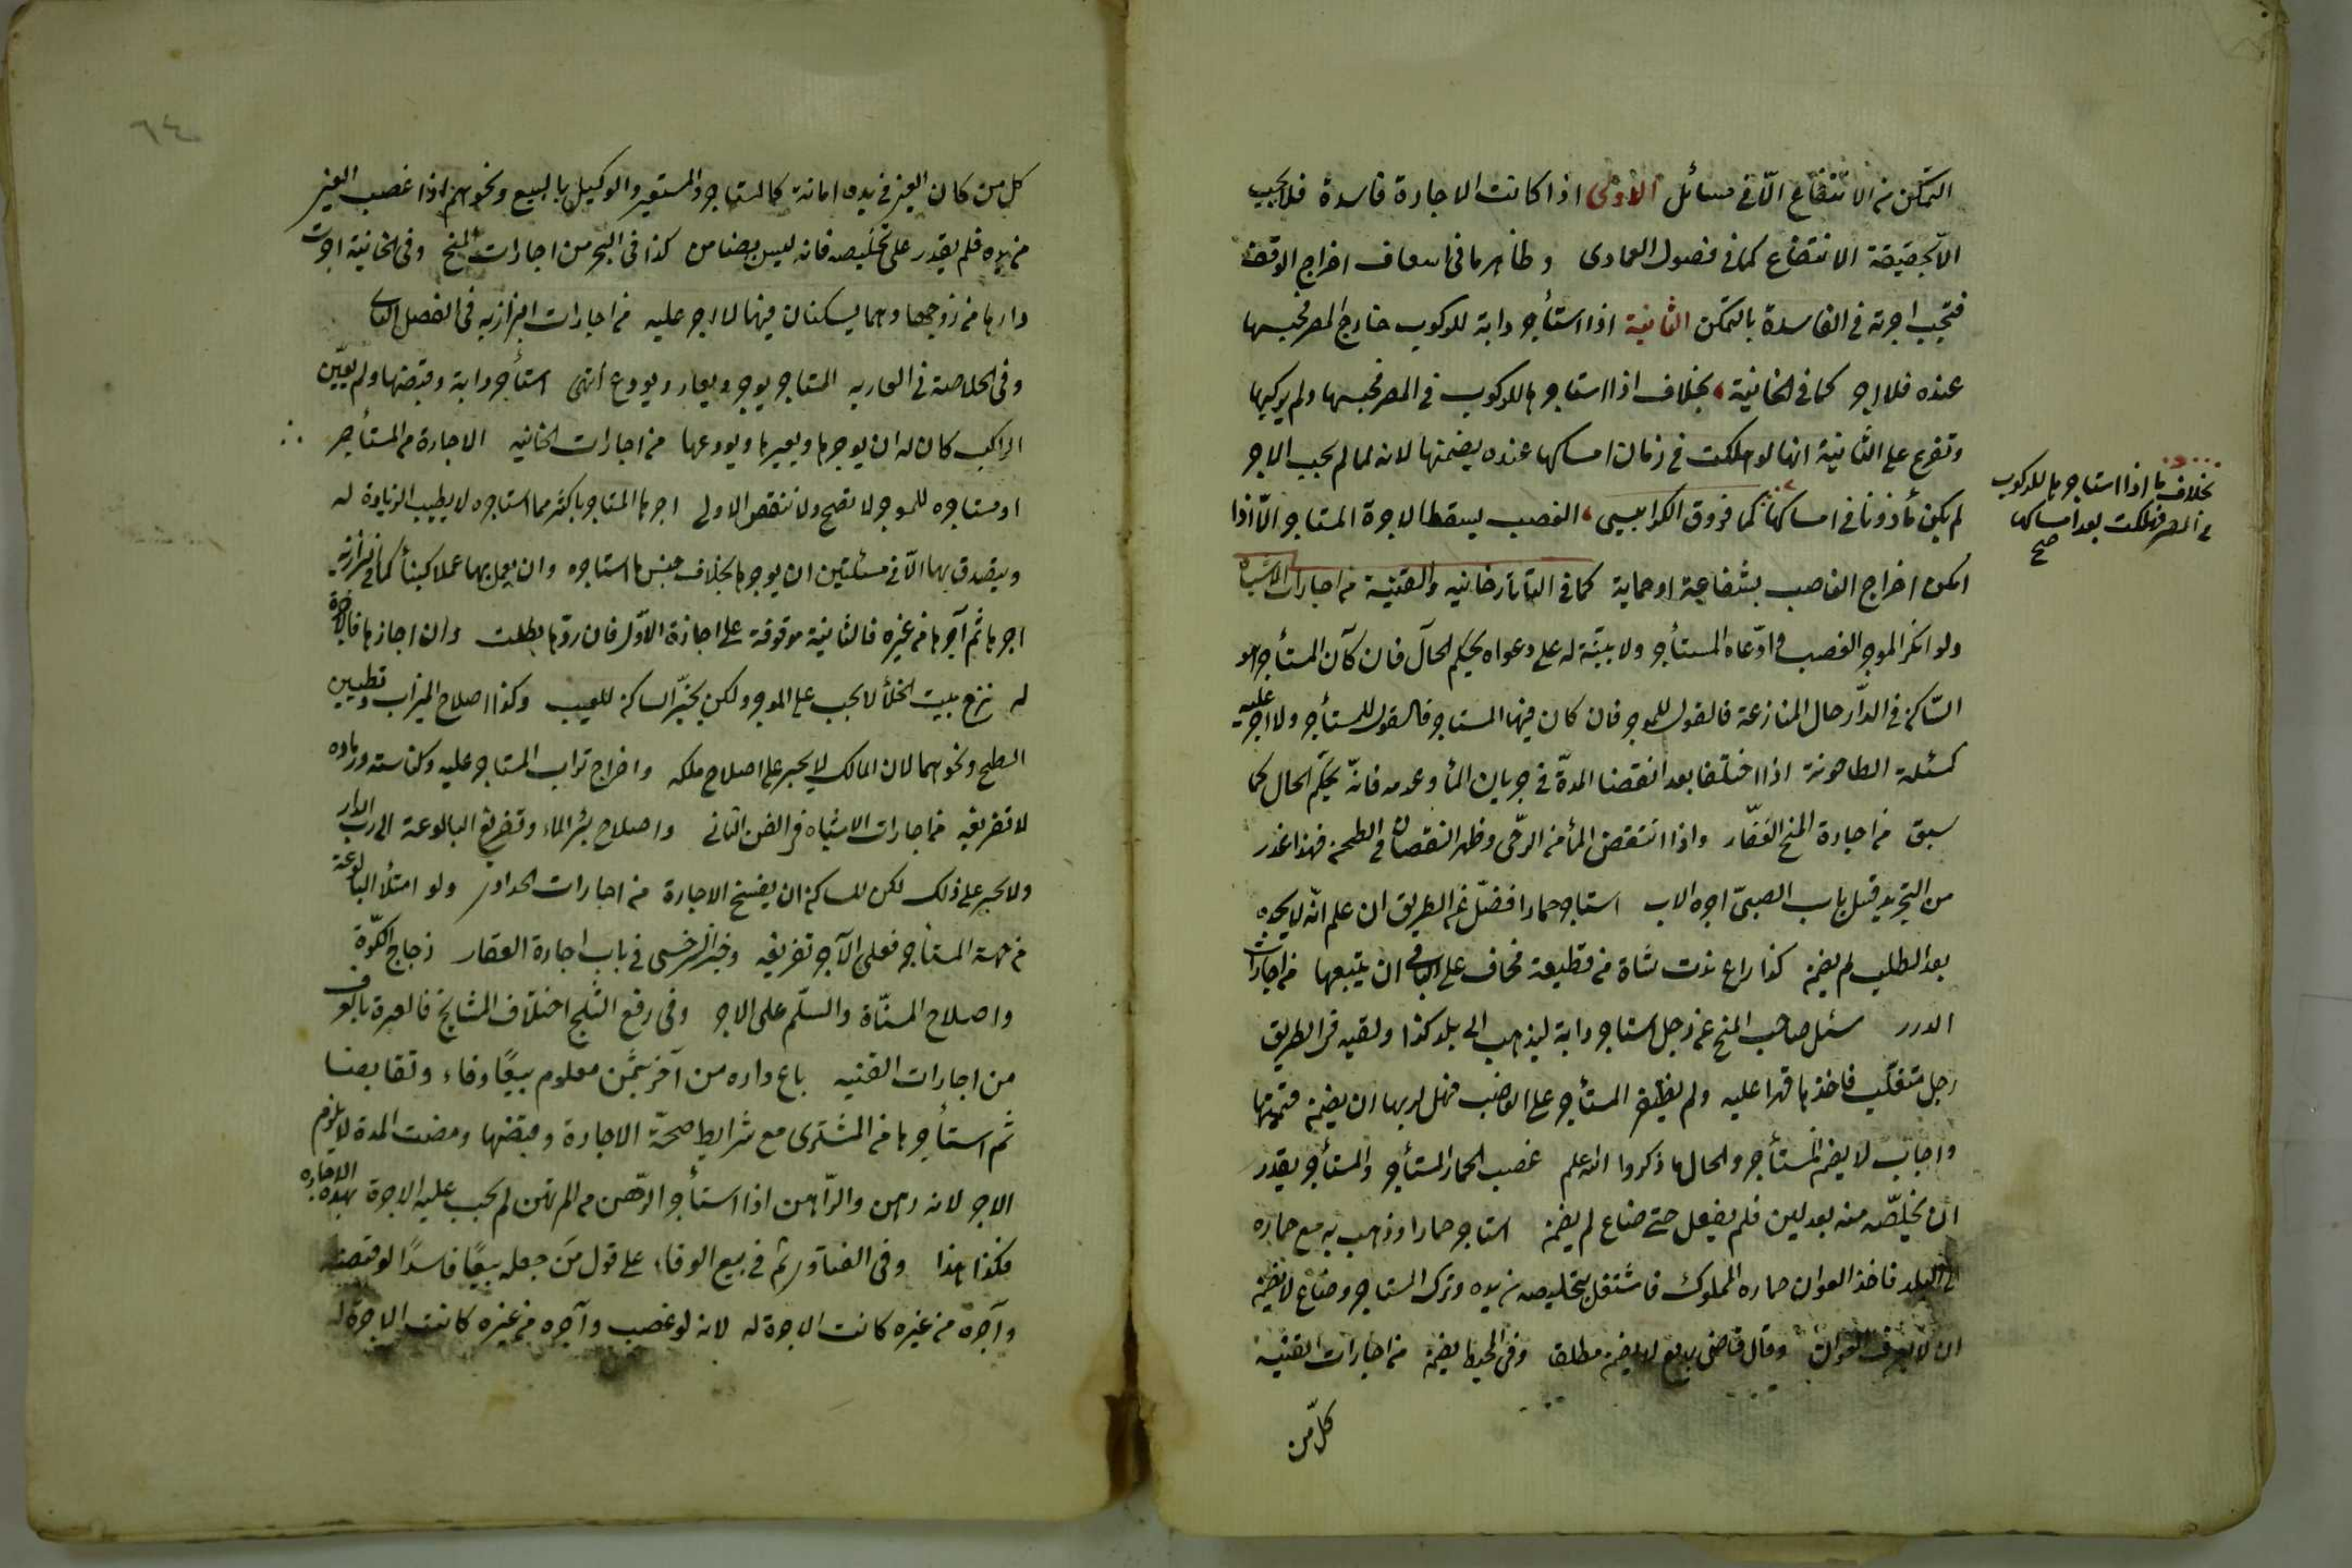 التمكن من الانتفاع الّا في مسائل الاولى اذا كانت الاجارة فاسدة فلا يجب
الّا بحقيقة الانتفاع كما في فصول العمادى وظاهر ما في اسعاف اخراج الوقف
فتجب اجرته في الفاسدة بالتمكن الثانية اذا استأجر دابة للركوب خارج المصر فحبسها
عنده فلا اجر كما في الخانية بخلاف اذا استاجرها للركوب في المصر فحبسها ولم يركبها
وتفرع على الثانية انها لو هلكت في زمان امساكها عنده يضمنها لانه لما لم يجب الاجر
لم يكن مأذونا في امساكها كما فروق الكرابيسى الغصب يسقط الاجرة المستاجر الّا اذا
امكن اخراج الغاصب بشفاعة او حماية كما في التاتارخانيه والقنية من اجارات الاشباه
ولو انكر الموجر الغصب وادّعاه المستأجر ولا بيّنة له على دعواه يحكم الحال فان كان المستأجر هو
السّاكن في الدّار حال المنازعة فالقول للموجر فان كان فيها المستاجر فالقول للمستأجر ولا اجر عليه
كمسئلة الطاحونة اذا اختلفا بعد انقضا المدّة في جريان المأ وعدمه فانّه يحكّم الحال كما
سبق من اجارة المنح الغفّار واذا انتقض المأ من الرحى وظهر النقصان في الطحن فهذا عذر
من التجريد قبل باب الصبىّ اجره الاب استاجر حمارا فضلّ عن الطريق ان علم انّه لا يجده
بعد الطلب لم يضمن كذا راع ندت شاة من قطيعه فخاف على الباقى ان يتبعها من اجارات
الدرر سئل صاحب المنح عن رجل استاجر دابة ليذهب الى بلد كذا ولقيه في الطريق
رجل متغلّب فاخذها قهرا عليه ولم يظفر المستأجر على الغاصب فهل لربها ان يضمن قيمتها
واجاب لا يضمن المستأجر والحال ما ذكروا الله علم غصب الحمار المستأجر والمستأجر يقدر
ان يخلّصه منه بعد لين فلم يفعل حتى ضاع لم يضمن استاجر حمارا وذهب به مع حماره
الى البلد فاخذ العوان حماره المملوك فاشتغل بتخليصه من يده وترك المستاجر وضاع لا يضمن
ان لا يعرف العوان وقال قاضى بديع لا يضمن مطلقا وفى المحيط يضمن من اجارات القنية
كلّ من
بخلاف ما اذا استاجرها للركوب
في المصر فهلكت بعد امساكها
صح
٦٤
كل من كان العين في يده امانة كالمستاجر والمستعير والوكيل بالبيع ونحوهم اذا غصب العين
من يده فلم يقدر على تخليصه فانه ليس بضامن كذا في البحر من اجارات المنح وفى الخانية اجرت
دارها من زوجها وهما يسكنان فيها لا اجر عليه من اجارات البزازيه في الفصل الثانى
وفى الخلاصة في العاريه المستاجر يوجر ويعار ويودع انتهى استأجر دابة وقبضها ولم يعيّن
الراكب كان له ان يوجرها ويعيرها ويودعها من اجارات الخانيه الاجارة من المستأجر
او مستاجره للموجر لا تصح ولا تنقض الاولى اجرها المستاجر باكثر مما استاجره لا يطيب الزيادة له
ويتصدق بها الّا في مسئلتين ان يوجرها بخلاف جنس ما استاجره وان يعمل بها عملا كبناً كما في البزازية
اجرها ثم آجرها من غيره فالثانية موقوفة على اجازة الاوّل فان ردّها بطلت وان اجازها فالاجرة
له نزع بيت الخلأ لا يجب على الموجر ولكن يخيّر الساكن للعيب وكذا اصلاح الميزاب وتطيين
السطح ونحوهما لان المالك لا يجبر على اصلاح ملكه واخراج تراب المستاجر عليه وكناسته ورماده
لا تفريغه من اجارات الاشباه في الفن الثانى واصلاح بئر الماء وتفريغ البالوعة الى رب الدار
ولا يجبر على ذلك لكن للساكن ان يفسخ الاجارة من اجارات الحدادى ولو امتلأ البالوعة
من جهة المستأجر فعلى الآجر تفريغه وخير السرخسى في باب اجارة العقار زجاج الكوّة
واصلاح المسنّاة والسلّم على الاجر وفى رفع الثلج اختلاف المشايخ فالعبرة بالعرف
من اجارات القنيه باع داره من آخر بثمن معلوم بيعًا وفاء وتقابضا
ثم استأجرها من المشترى مع شرايط صحّة الاجارة وقبضها ومضت المدة لا يلزم
الاجر لانه رهن والرّاهن اذا استأجر الرّهن من المرتهن لم يجب عليه الاجرة بهذه الاجاره
فكذا هذا وفى الفتاوى ثم في بيع الوفاء على قول مَن جعله بيعًا فاسدًا لو قبضه
وآجره من غيره كانت الاجرة له لانه لو غصب وآجره من غيره كانت الاجرة له